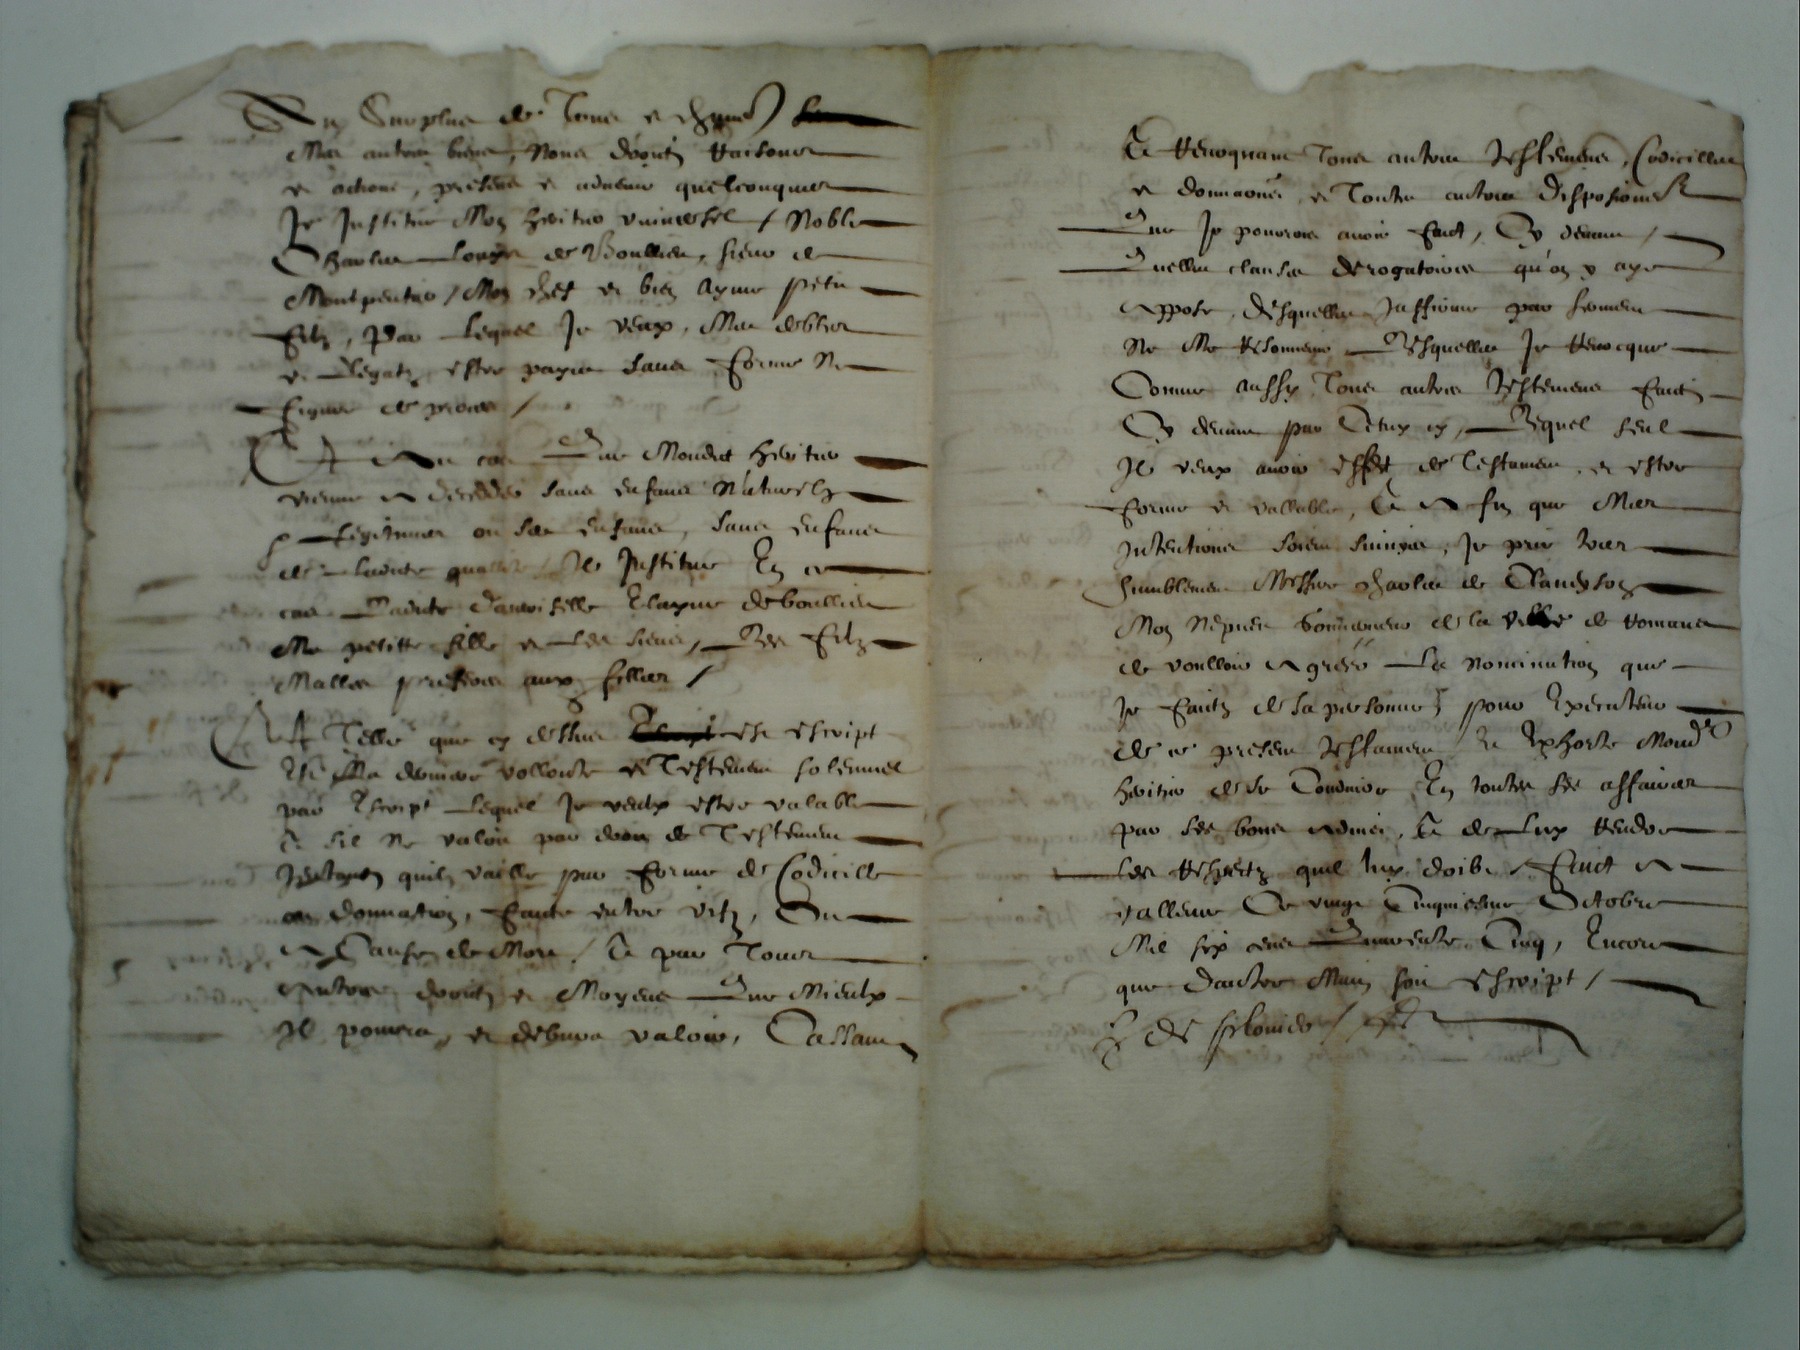 Au Surplus de Tous et chacuns
Mes autres biens, Noms droitz Raisons
et actions, presens et advenir quelconques
Je Institue Mon heritier universel / Noble
Charles Louys de Boullieu, sieur de
Montpentier / Mon cher et bien Ayme petit
filz, Par Lequel Je veux, Mes debtes
et Legatz estre payes sans forme Ne
figure de proces /
Et Au cas Que Mondict heritier
vienne A deceder sans enfans Naturelz
Legitimes ou ses enfans, sans enfans
de Ladite qualite / Je Institue En ce
cas Ladite damoiselle Clayne de boullieu
Ma petitte fille et Les siens, Les filz
Malles preferes aux filles /
Et Telle que cy dessus est escript
Est Ma derniere vollonte et Testement solennel
par Escript Lequel Je veulx estre valable
Et sil Ne valoit par droit de Testement
quil vaille par forme de Codicille
ou donnation, faicte entre vifz, Ou
A Cause de Mort / Et par Tous
Autres droitz et Moyens Que Mieulx
Il pourra, et debvra valoir, Cassant
Et Revoquant Tous autres Testemens, Codicilles
et donnaons, et Toutes autres disposions
Que Je pourrois avoir faict, Cy devant /
Quelles clauses derogatoires qu'on y aye
Appose, desquelles Jaffirme par serment
Ne Me Resouvenir Lesquelles Je Revocque
Comme aussy Tous autres Testemens faictz
Cy devant par Cetuy cy, Lequel seul
Je veux avoir effect de Testament, et estre
ferme et vallable, Et A fin que Mes
Intentions soient suivyes, Je prie tres
humblement Messire Charles de Claveyson
Mon Nepveu Gouverneur de la ville de Romans
de voulloir Agreer La nomination que
Je faictz de sa personne pour Executeur
de ce present Testament Et Exhorte Mond
heritier de se Conduire En toutes ses affaires
par ses bons Advis, Et de Luy Rendre
Les Respectz quil luy doibt / Faict A
Ce vingt Cinquiesme Octobre
Mil six cens Quarente Cinq, Encore
que dautre Main soit escript /